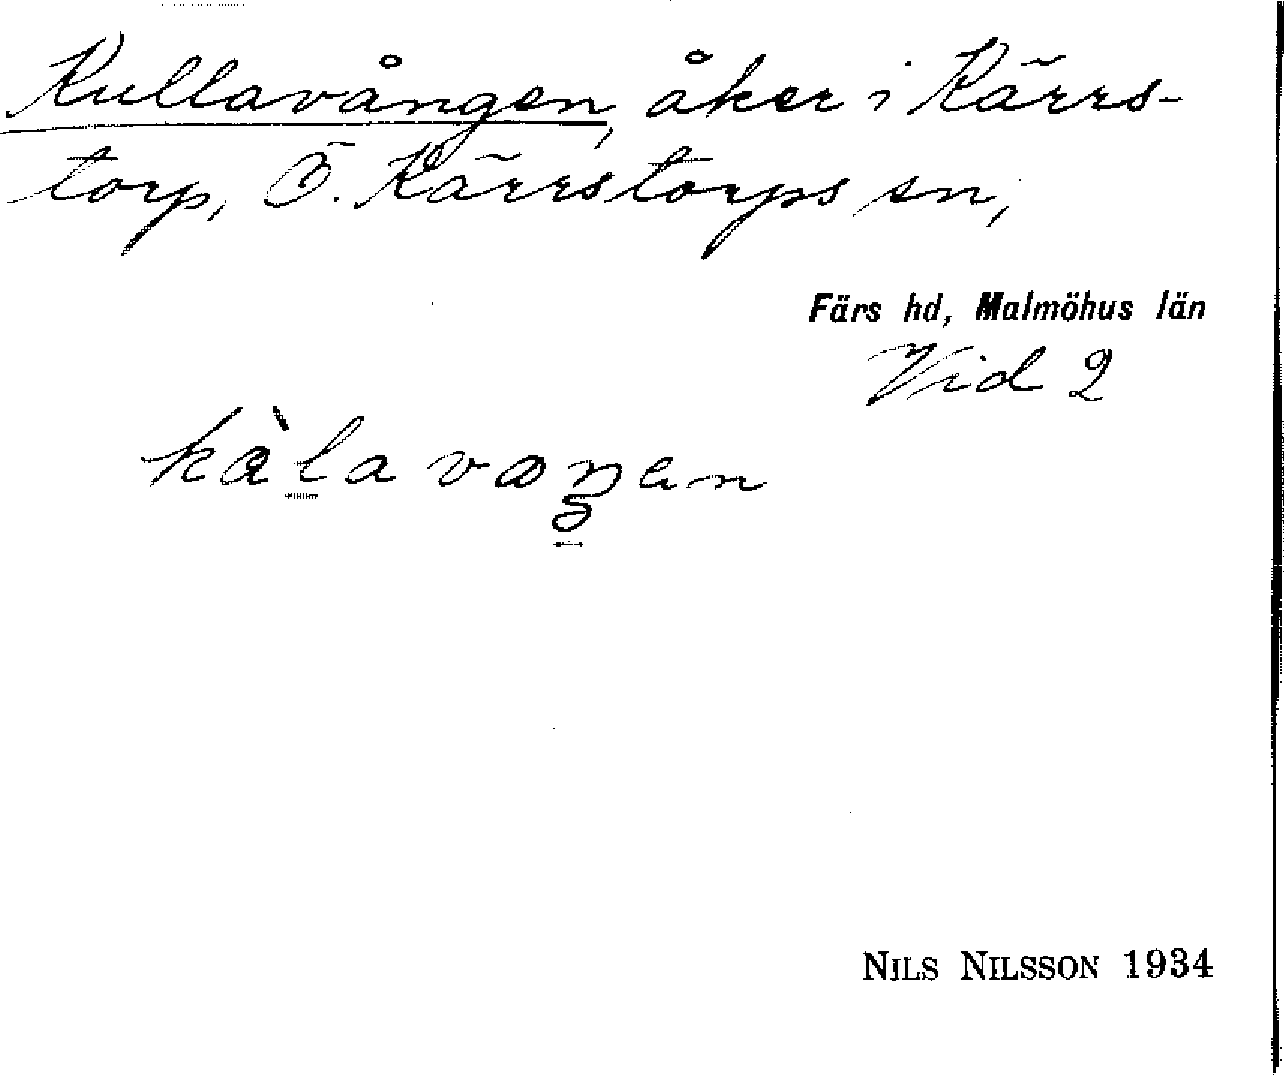 Kullavången, åker i Kärrs-
torp, Ö. Kärrstorps sn,
Färs hd, Malmöhus län
Vid 2
NILS NILSSON 1934